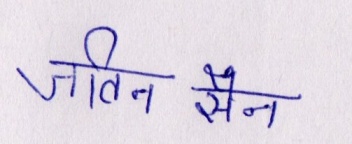 जतिन सैन